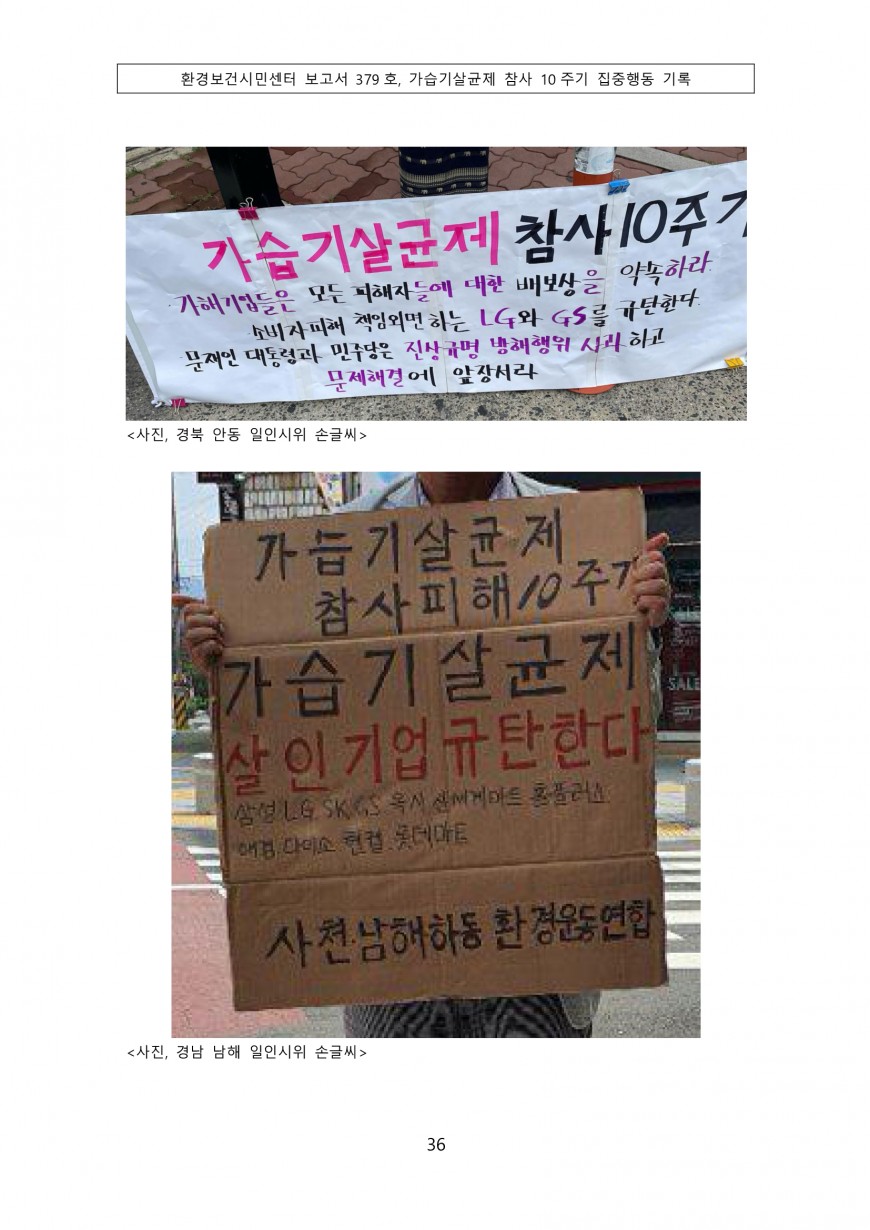 환경보건시민센터 보고서 379호, 가습기살균제 참사 10주기 집중행동 기록
가습기살균제 참사10주기
가해기업들은 모든 피해자들에 대한 배보상을 약속하라.
소비자피해 책임외면 하는 LG와 GS를 규탄한다.
문재인 대통령과 민주당은 진상규명 방해행위 사과하고
문제해결에 앞장서라
<사진, 경북 안동 일인시위 손글씨>
가습기살균제
참사피해10주기
가습기살균제
살인기업규탄한다
삼성 LG SK GS 옥시 홈플러스
애경 다이소 롯데마트
사천·남해하동 환경운동연합
SALE
<사진, 경남 남해 일인시위 손글씨>
36